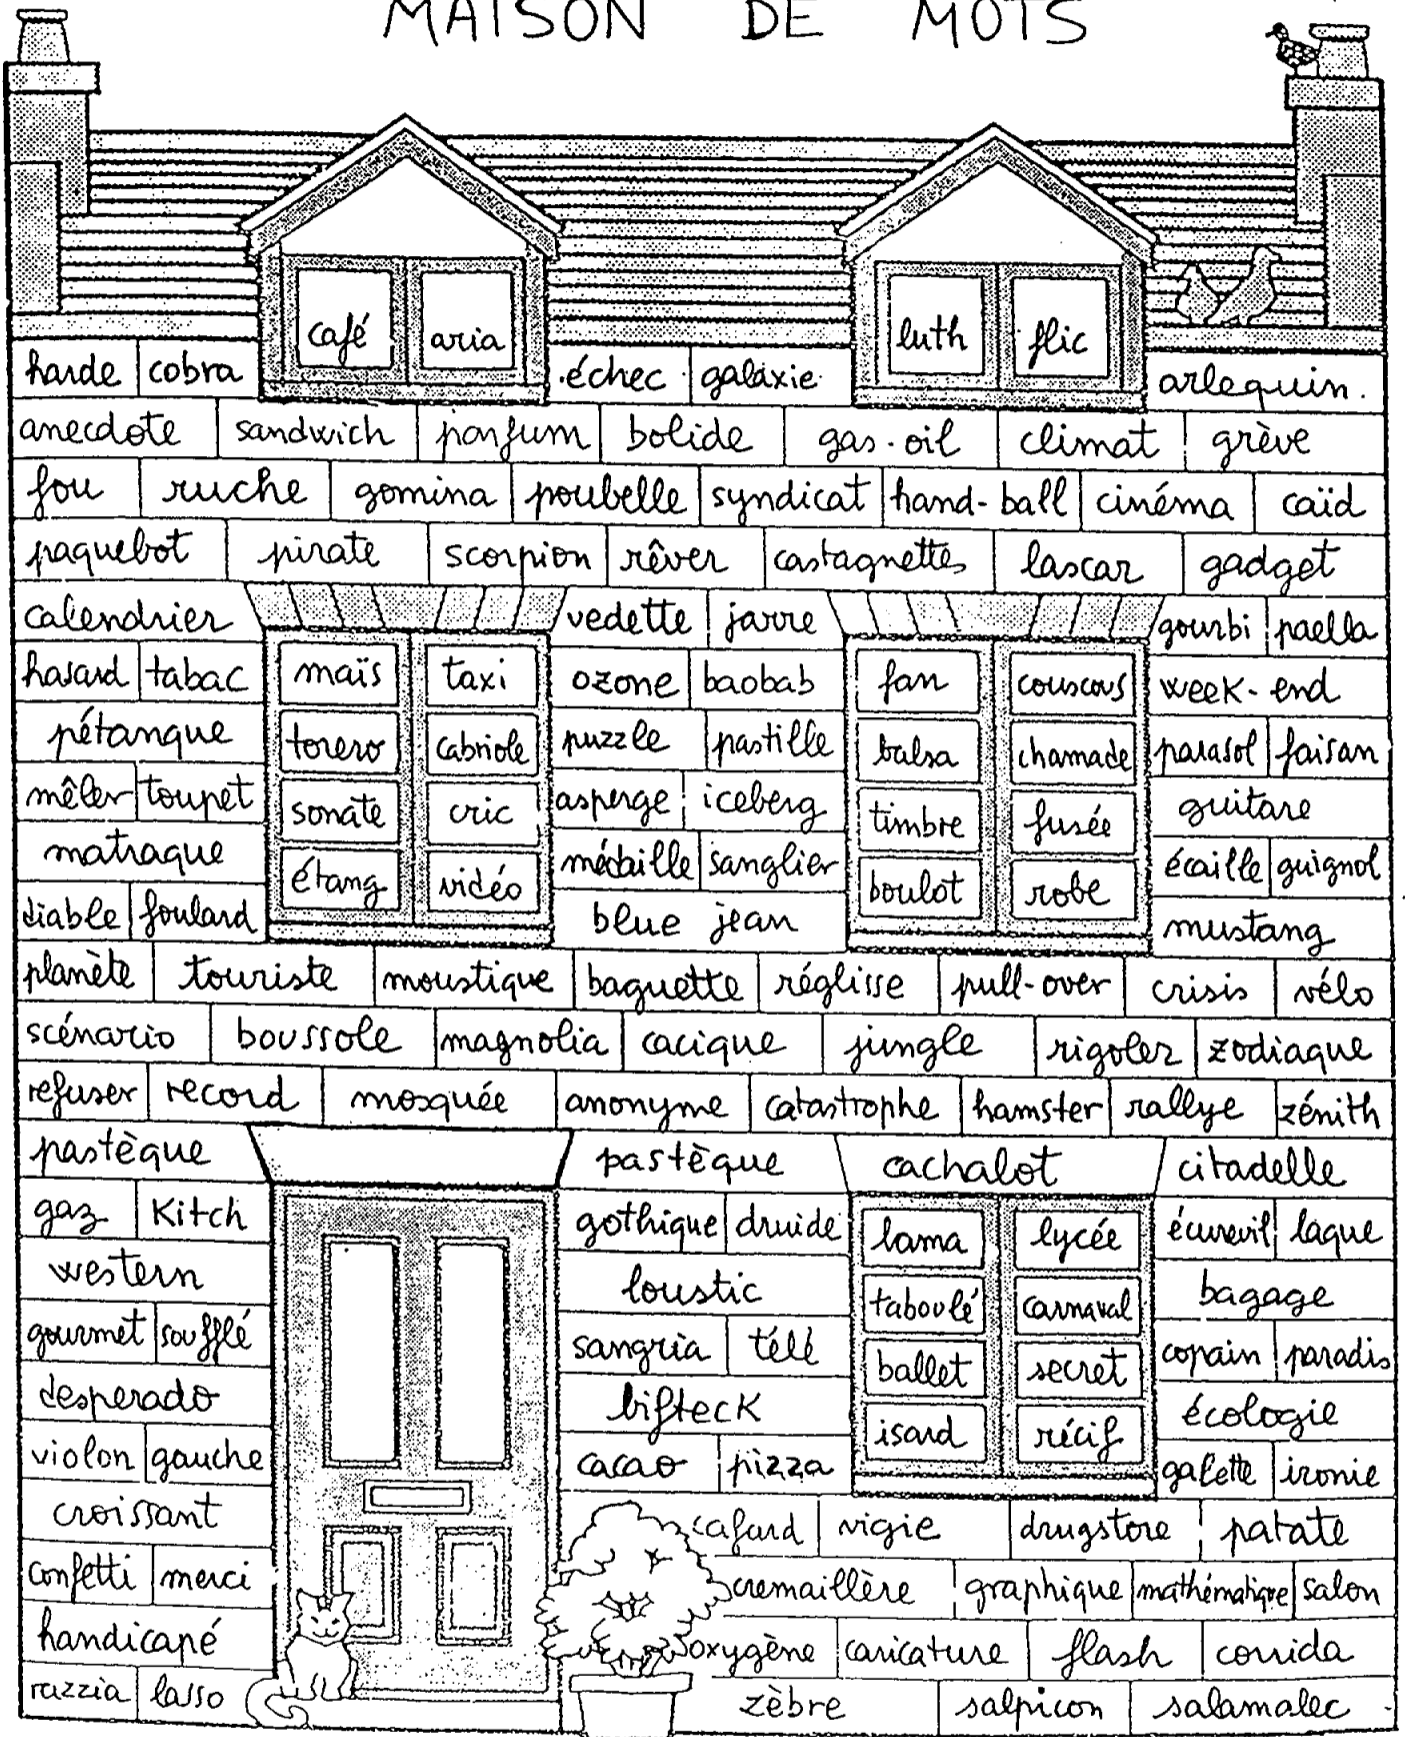 MAISON DE MOTS
café aria luth flic
harde cobra échec galaxie arlequin
anecdote sandwich parfum bolide gas-oil climat grève
fou ruche gomina poubelle syndicat hand-ball cinéma caïd
paquebot pirate scorpion rêver castagnettes lascar gadget
calendrier vedette jarre gourbi paella
hasard tabac maïs taxi ozone baobab fan couscous week-end
pétanque torero cabriole puzzle pastille balsa chamade parasol faisan
mêler toupet sonate cric asperge iceberg timbre fusée guitare
matraque étang vidéo médaille sanglier boulot robe écaille guignol
diable foulard blue jean mustang
planète touriste moustique baguette réglisse pull-over crisis vélo
scénario boussole magnolia cacique jungle rigoler zodiaque
refuser record mosquée anonyme catastrophe hamster rallye zénith
pastèque pastèque cachalot citadelle
gaz Kitch gothique druide lama lycée écureuil laque
western loustic taboulé carnaval bagage
gourmet soufflé sangria télé ballet secret copain paradis
desperado bifteck isard récif écologie
violon gauche cacao pizza galette ironie
croissant cafard vigie drugstore patate
confetti merci cremaillère graphique mathématique salon
handicapé oxygène caricature flash corrida
razzia lasso zèbre salpicon salamalec